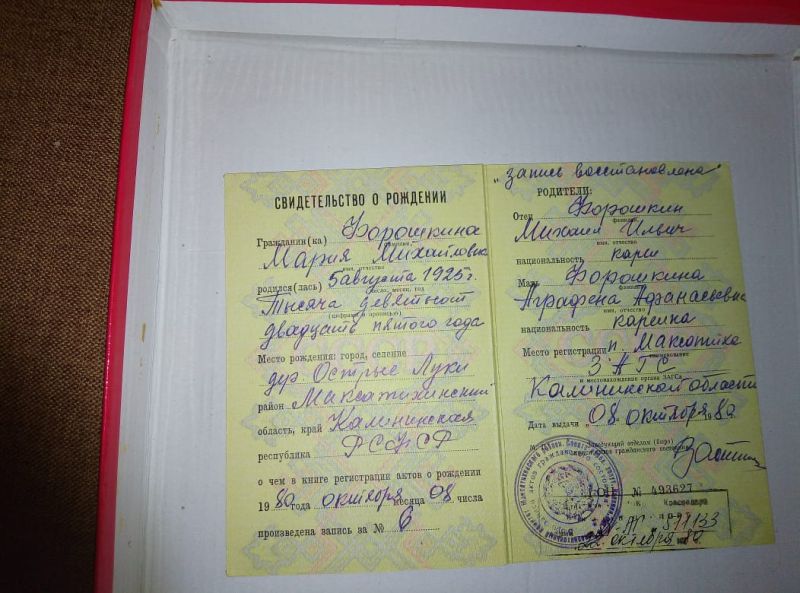 СВИДЕТЕЛЬСТВО О РОЖДЕНИИ
Гражданин(ка) Форошкина
фамилия,
Мария Михайловна
имя, отчество
родился(лась) 5 августа 1925 г.
число, месяц, год
Тысяча девятьсот
(цифрами и прописью)
двадцать пятого года
Место рождения: город, селение
дер. Острые Луки
район Максатихинский
область, край Калининская
республика РСФСР
о чем в книге регистрации актов о рождении
1980 года октября месяца 08 числа
произведена запись за № 6
"запись восстановлена"
РОДИТЕЛИ:
Отец Форошкин
фамилия
Михаил Ильич
имя, отчество
национальность карел
Мать Форошкина
фамилия
Аграфена Афанасьевна
имя, отчество
национальность карелка
Место регистрации п. Максатиха
наименование
ЗАГС
и местонахождение органа ЗАГСа
Калининской области
Дата выдачи „08" октября 1980
М. П. Заведующий отделом (бюро)
записи актов гражданского состояния
№ 493627
г. Краснояр
№ 511133
22 октября 80